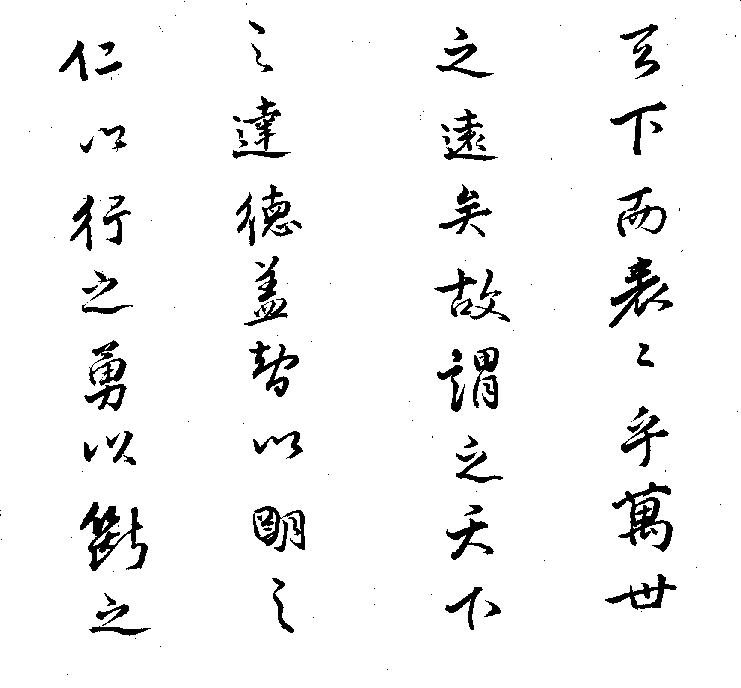 天下而表々乎萬世
之遠矣故謂之天下
之達德蓋智以明之
仁以行之勇以斷之